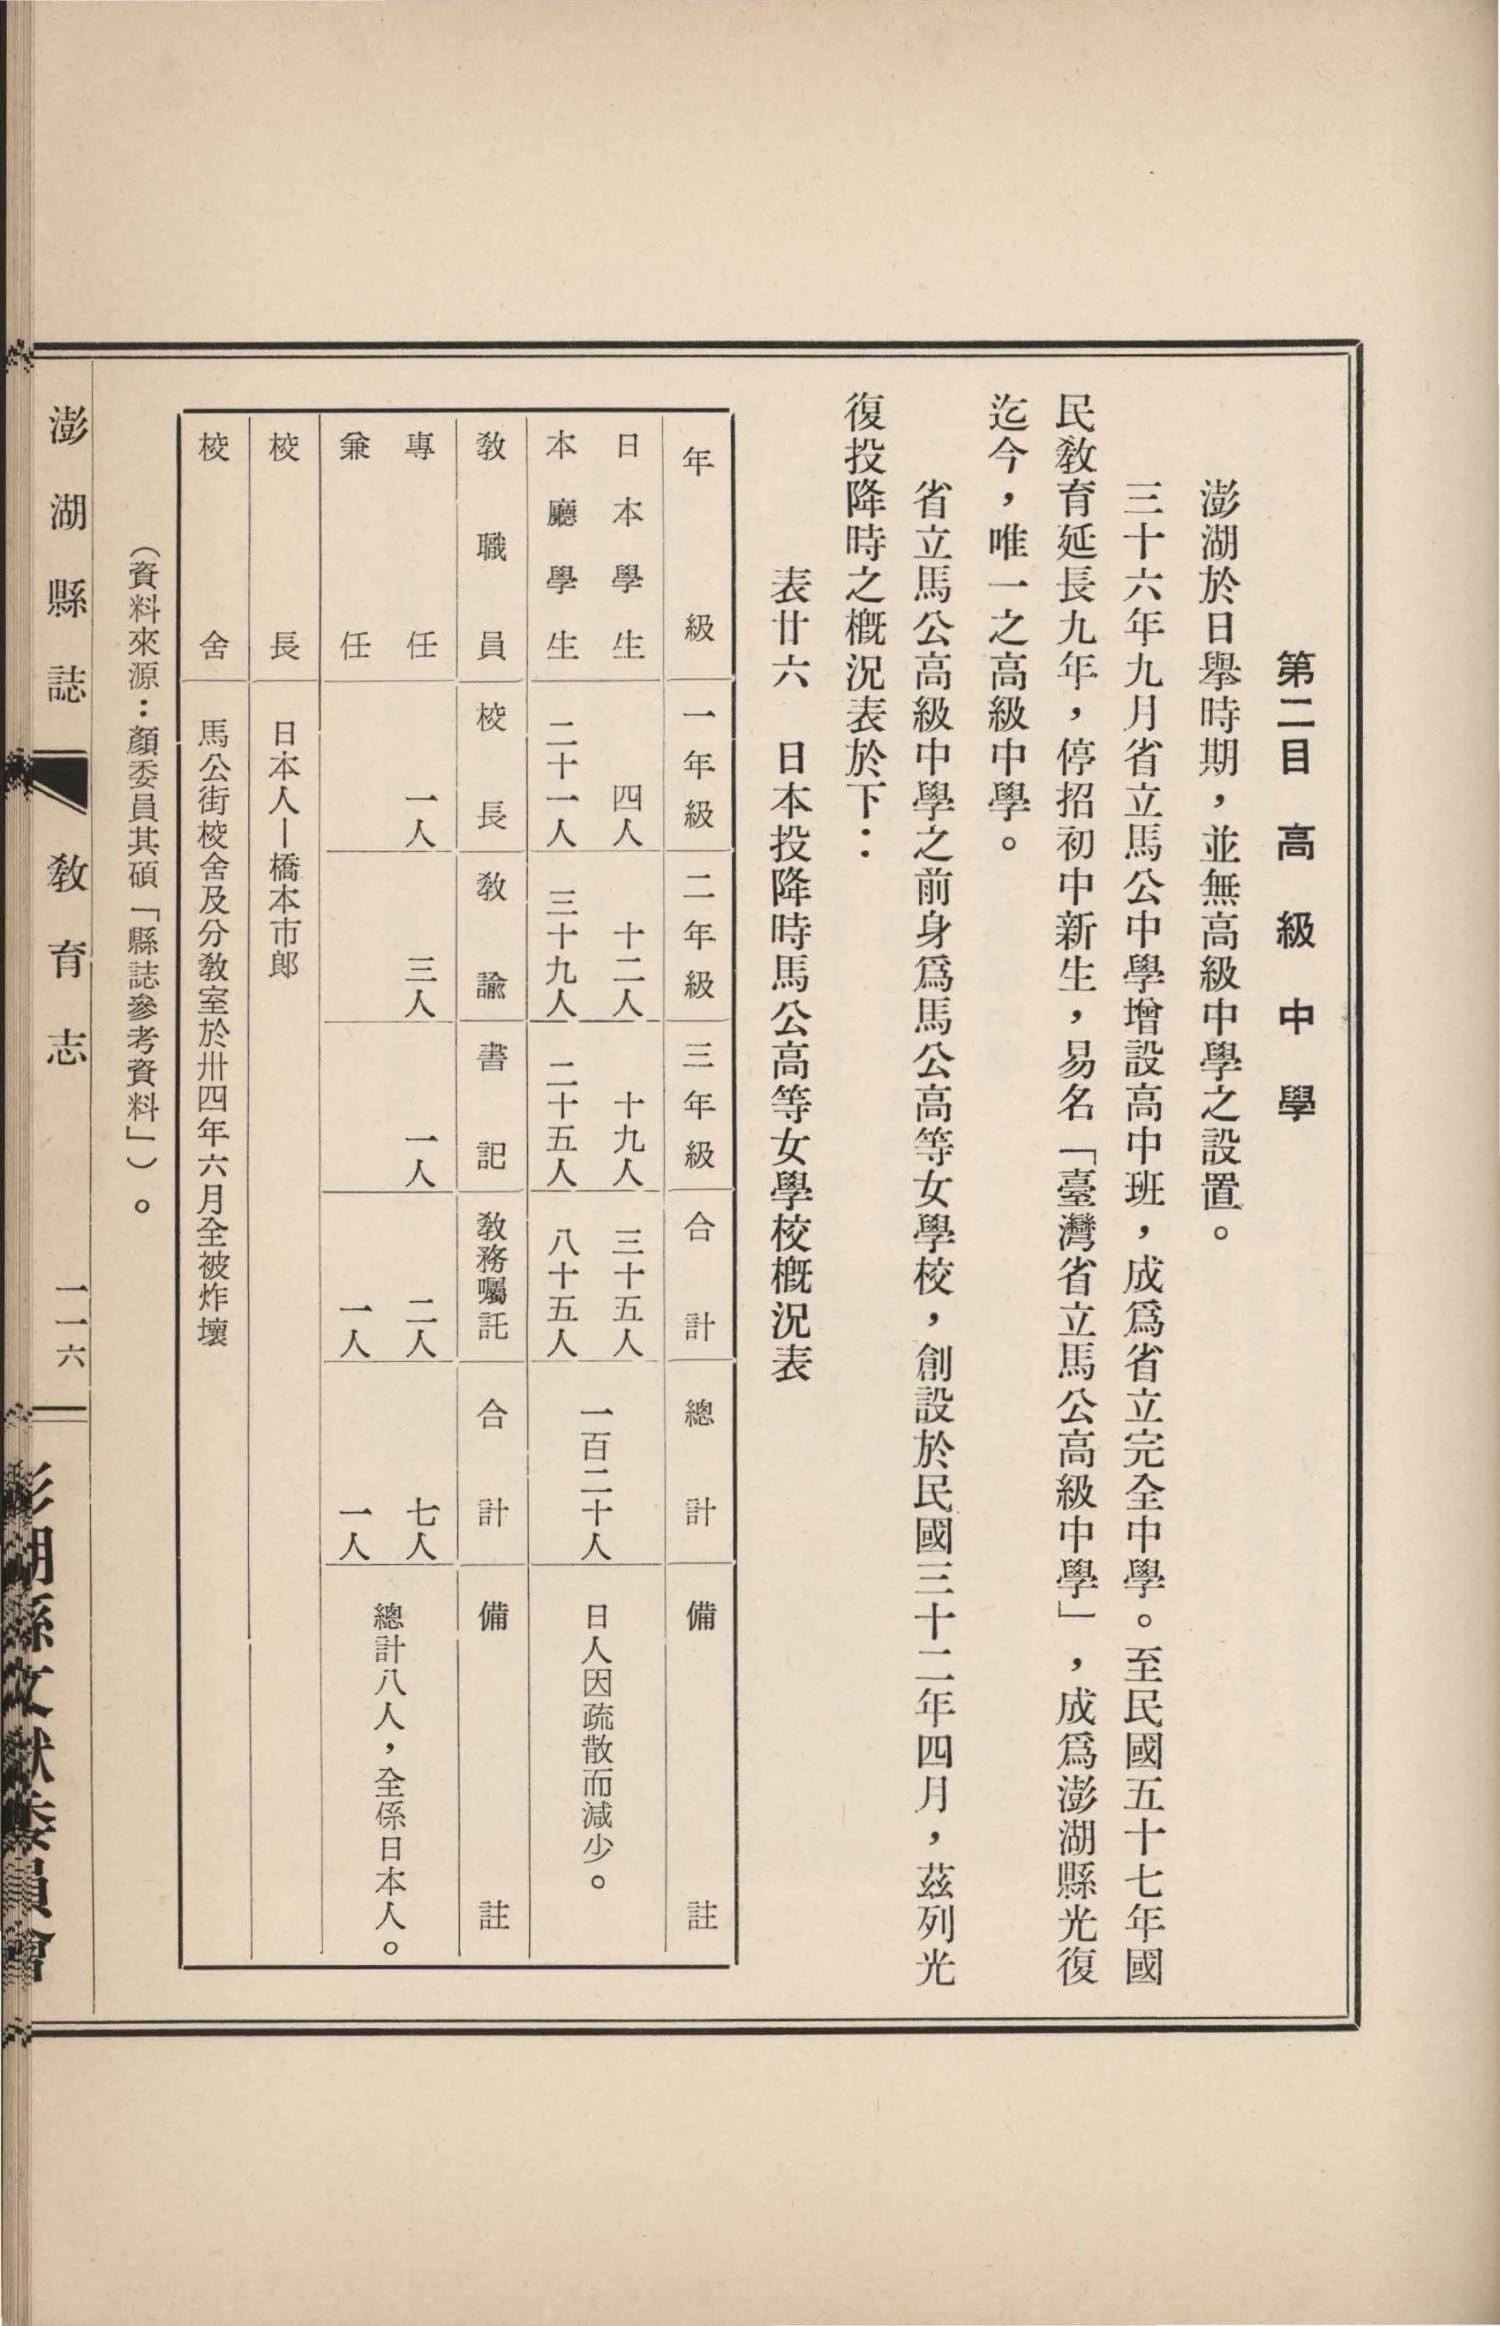 第二目　高級中學
澎湖於日據時期，並無高級中學之設置。
三十六年九月省立馬公中學增設高中班，成爲省立完全中學。至民國五十七年國
民敎育延長九年，停招初中新生，易名「臺灣省立馬公高級中學」，成爲澎湖縣光復
迄今，唯一之高級中學。
省立馬公高級中學之前身爲馬公高等女學校，創設於民國三十二年四月，茲列光
復投降時之概況表於下：
表廿六　日本投降時馬公高等女學校概況表
年級　一年級　二年級　三年級　合計　總計　備註
日本學生　四人　十二人　十九人　三十五人
本廳學生　二十一人　三十九人　二十五人　八十五人
一百二十人　日人因疏散而減少。
敎職員　校長　敎諭　書記　敎務囑託　合計　備註
專任　一人　三人　一人　二人　七人
兼任　一人　一人
總計八人，全係日本人。
校長　日本人—橋本市郎
校舍　馬公街校舍及分敎室於卅四年六月全被炸壞
（資料來源：顏委員其碩「縣誌參考資料」）。
澎湖縣誌　敎育志　一一六
澎湖縣文獻委員會